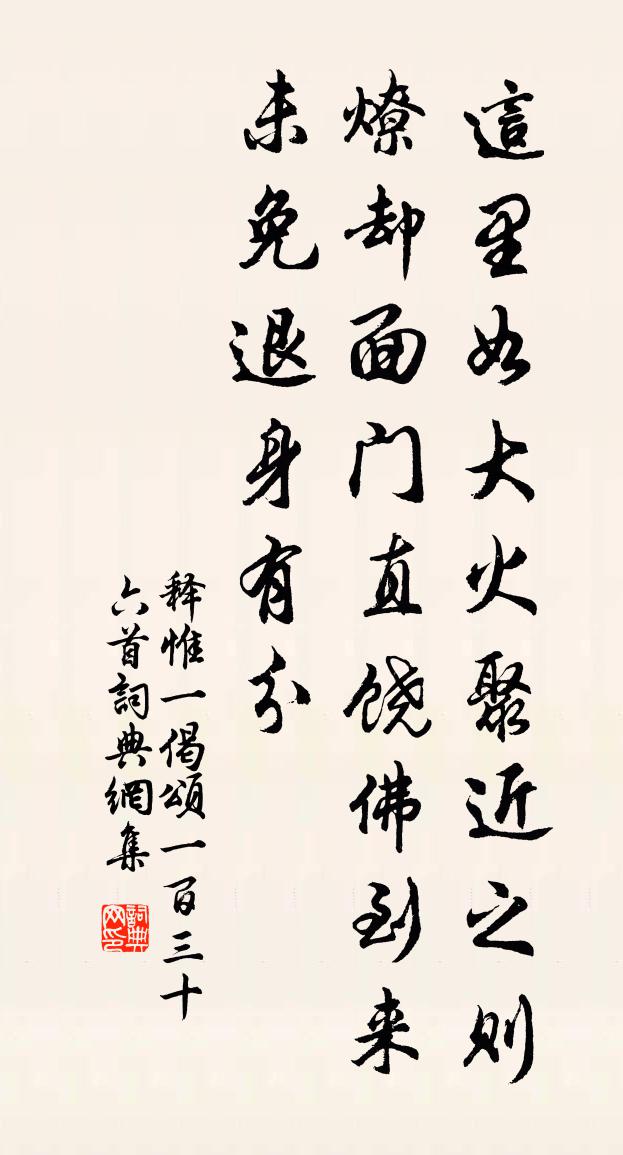 這里如大火聚近之则
燎却面门直饶佛到来
未免退身有分
释惟一偈頌一百三十
六首詞典網集
詞典
网印